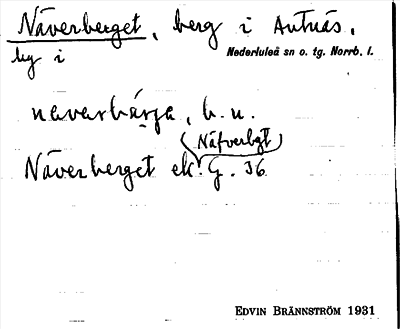 Näverberget, berg i Antnäs,
by i Nederluleå sn o. tg. Norrb. l.
naverbárja, b. u.
(Näfverbgt)
Näverberget ek. G. 36
EDVIN BRÄNNSTRÖM 1931